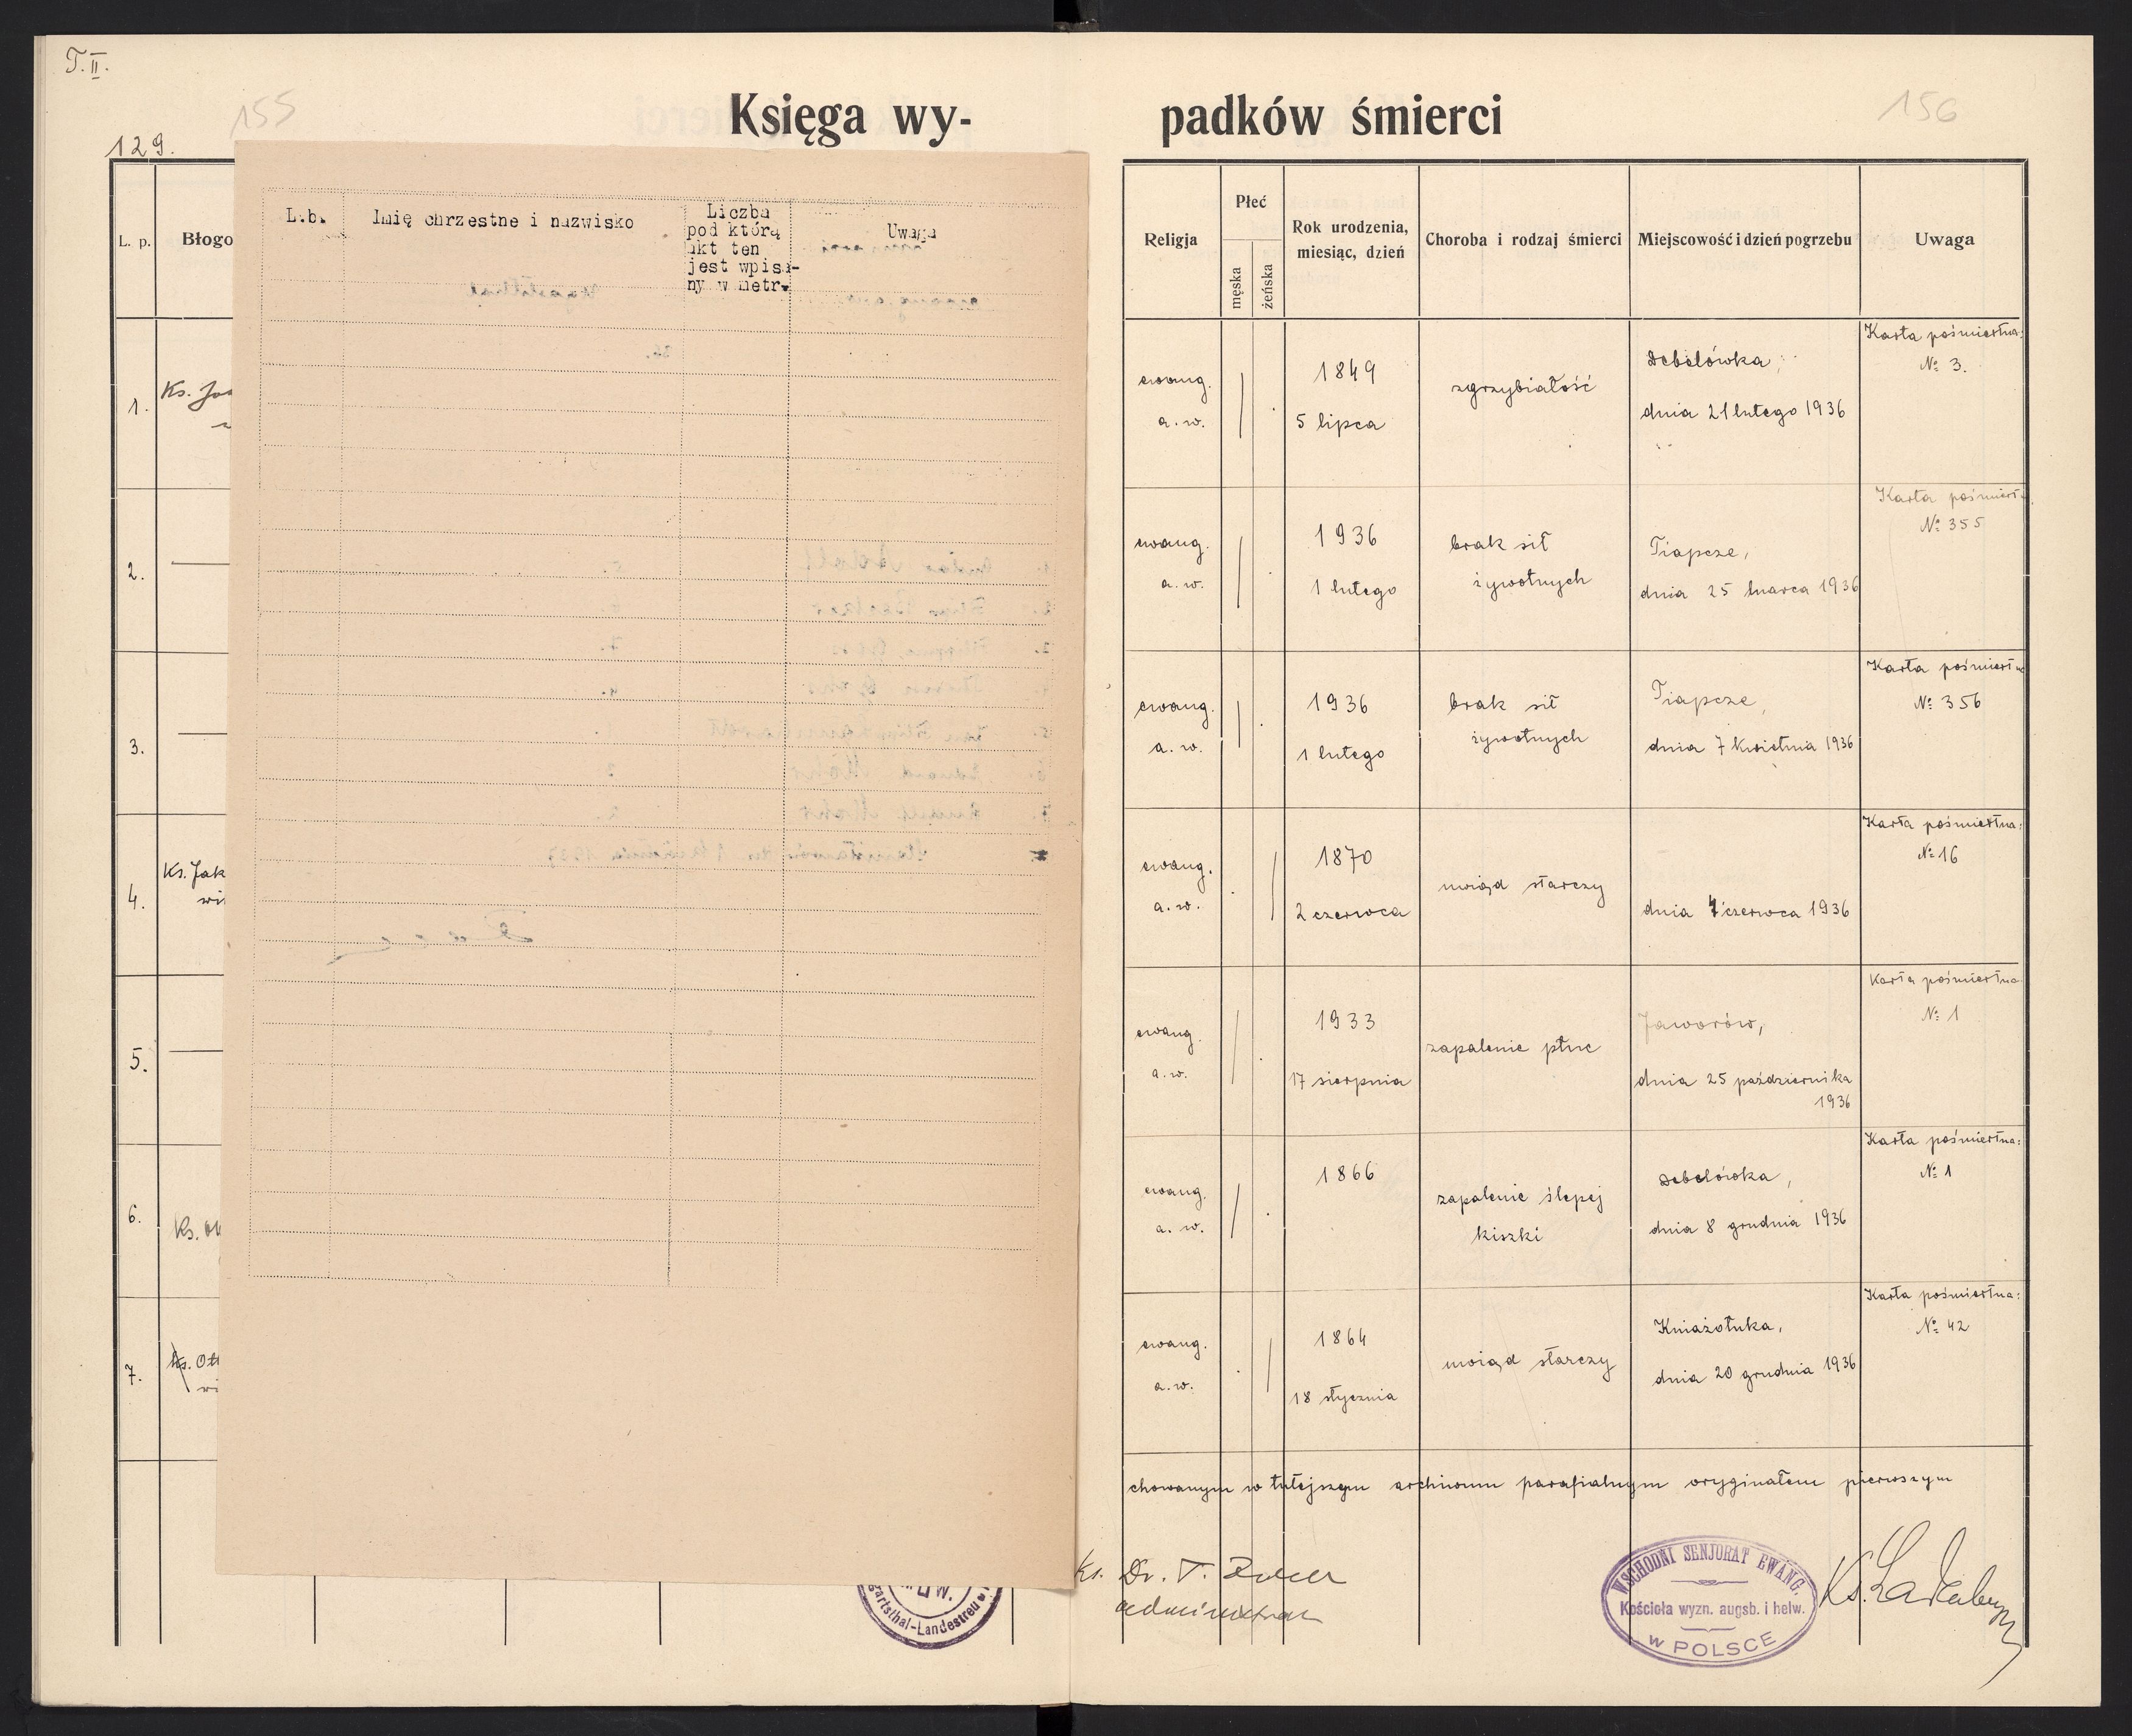 T. II.
155
156
Księga wy-
padków śmierci
129.
L. p.
Błogo
1.
Ks.
2.
3.
4.
Ks. Jak
5.
6.
Ks.
7.
Ks. Ott
L.b.
Imię chrzestne i nazwisko
Liczba
pod którą
akt ten
jest wpisa-
ny w metr.
Uwaga
Religja
Płeć
męska
żeńska
Rok urodzenia,
miesiąc, dzień
Choroba i rodzaj śmierci
Miejscowość i dzień pogrzebu
Uwaga
ewang.
a. w.
1849
5 lipca
zgrzybiałość
Debelówka,
dnia 21 lutego 1936
Karta pośmiertna:
№ 3.
ewang.
a. w.
1936
1 lutego
brak sił
żywotnych
Tiapcze,
dnia 25 marca 1936
Karta pośmiert
№ 355
ewang.
a. w.
1936
1 lutego
brak sił
żywotnych
Tiapcze,
dnia 7 kwietnia 1936
Karta pośmiertna
№ 356
ewang.
a. w.
1870
2 czerwca
uwiąd starczy
dnia 4 czerwca 1936
Karta pośmiertna:
№ 16
ewang.
a. w.
1933
17 sierpnia
zapalenie płuc
Jaworów,
dnia 25 października
1936
Karta pośmiertna
№ 1
ewang.
a. w.
1866
zapalenie ślepej
kiszki
Debelówka,
dnia 8 grudnia 1936
Karta pośmiertna:
№ 1
ewang.
a. w.
1864
18 stycznia
uwiąd starczy
Kniażołuka,
dnia 20 grudnia 1936
Karta pośmiertna:
№ 42
chowanym w tutejszym archiwum parafialnym oryginałem pierwszym
Ks. Dr. T.
administrator
gartsthal-Landestreu
WSCHODNI SENJORAT EWANG.
Kościoła wyzn. augsb. i helw.
w POLSCE
Ks.